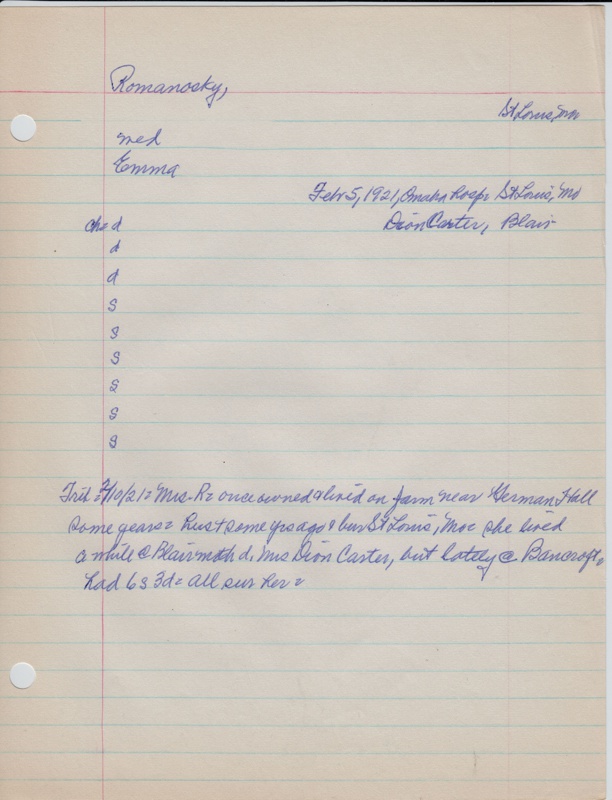 Romanosky,
St Louis, Mo
med
Emma
Feb 5, 1921, Omaha hosp = St Louis, Mo
Dion Carter, Blair
che d
d
d
s
s
s
s
s
s
Trib = 2/10/21 = Mrs. R = once owned & lived on farm near German Hall
some years = hus + some yrs ago & bur St Louis, Mo = she lived
a while @ Blair d, Mrs Dion Carter, but lately @ Bancroft =
had 6s 3d = all sur her =